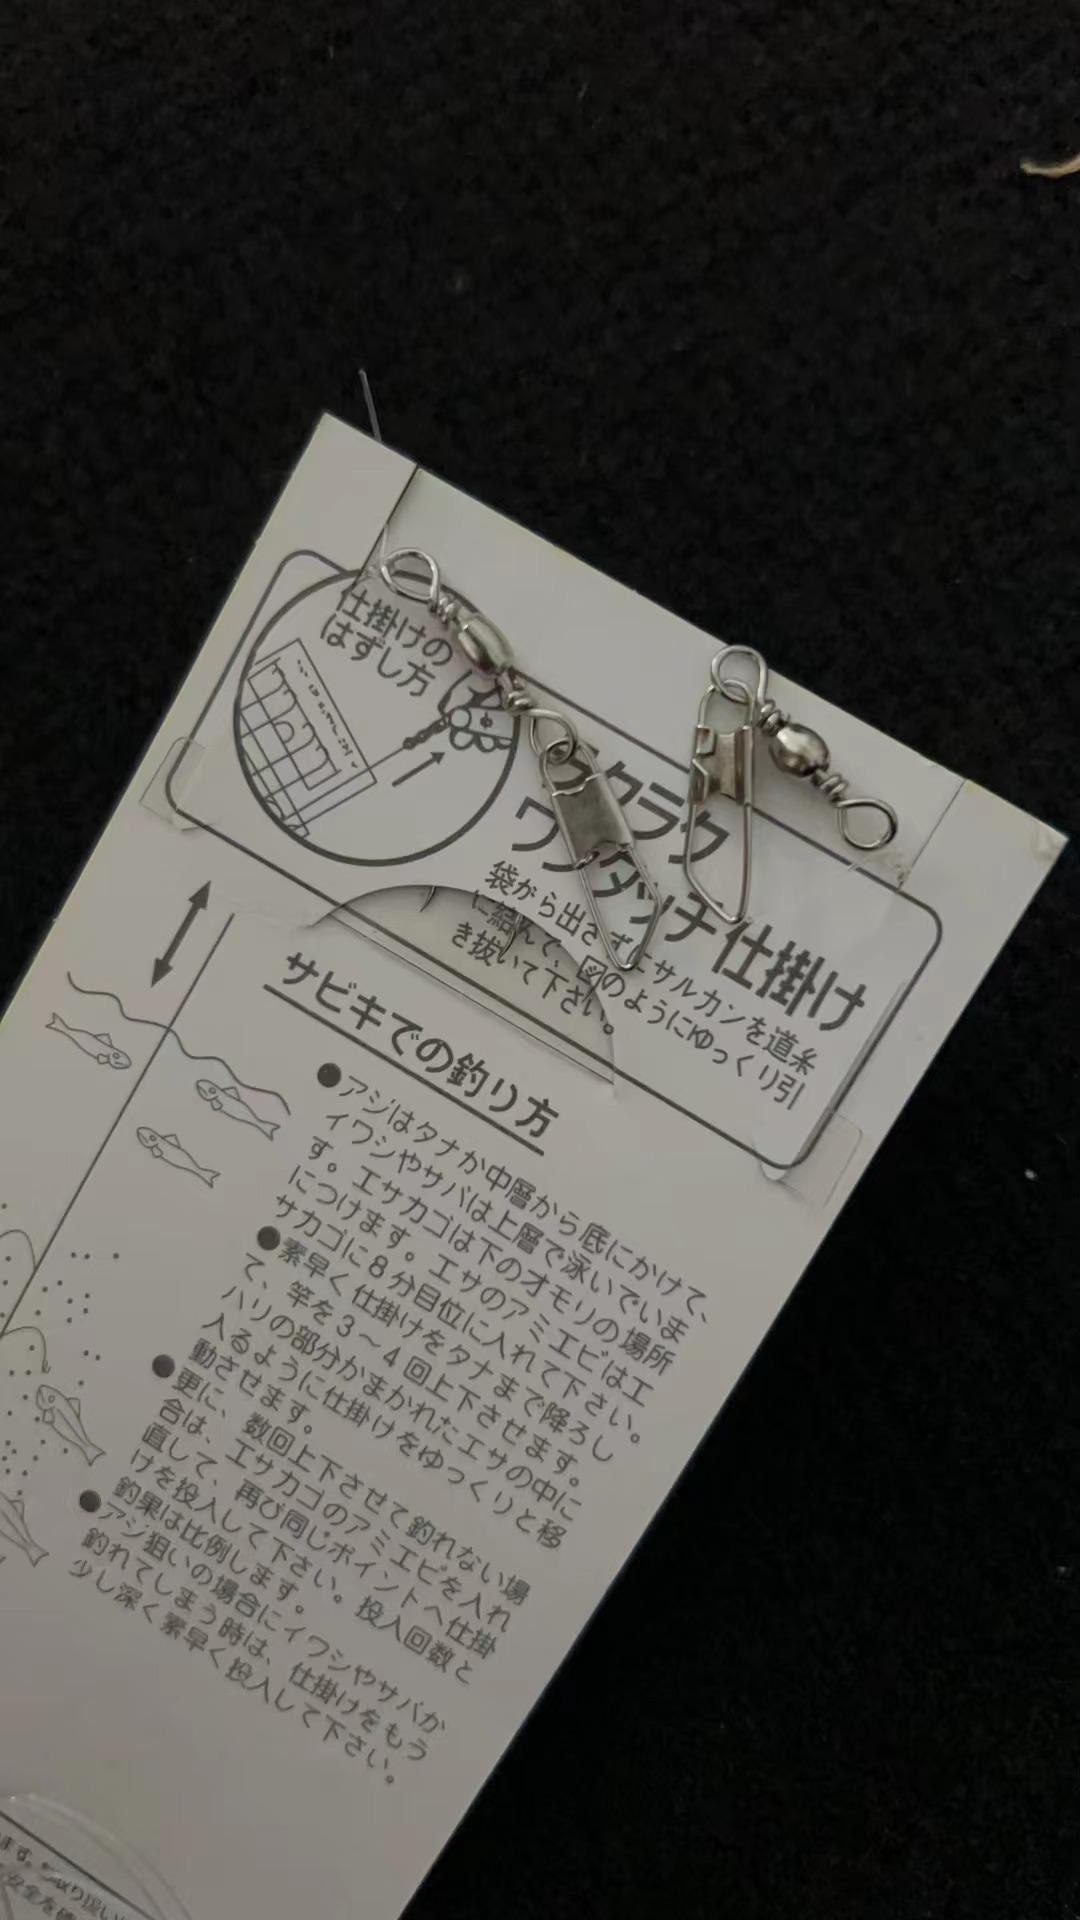 仕掛けの
はずし方
ラクラク
ワンタッチ仕掛け
袋から出さずにサルカンを道糸
に結んで、図のようにゆっくり引
き抜いて下さい。
サビキでの釣り方
●アジはタナが中層から底にかけて、
イワシやサバは上層で泳いでいま
す。エサカゴは下のオモリの場所
につけます。エサのアミエビはエ
サカゴに8分目位に入れて下さい。
●素早く仕掛けをタナまで降ろし
て、竿を3〜4回上下させます。
ハリの部分がまかれたエサの中に
入るように仕掛けをゆっくりと移
動させます。
●更に、数回上下させて釣れない場
合は、エサカゴのアミエビを入れ
直して、再び同じポイントへ仕掛
けを投入して下さい。投入回数と
釣果は比例します。
●アジ狙いの場合にイワシやサバが
釣れてしまう時は、仕掛けをもう
少し深く素早く投入して下さい。